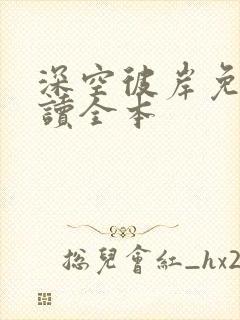 深空彼岸免
讀全本
總兒會紅_hx2